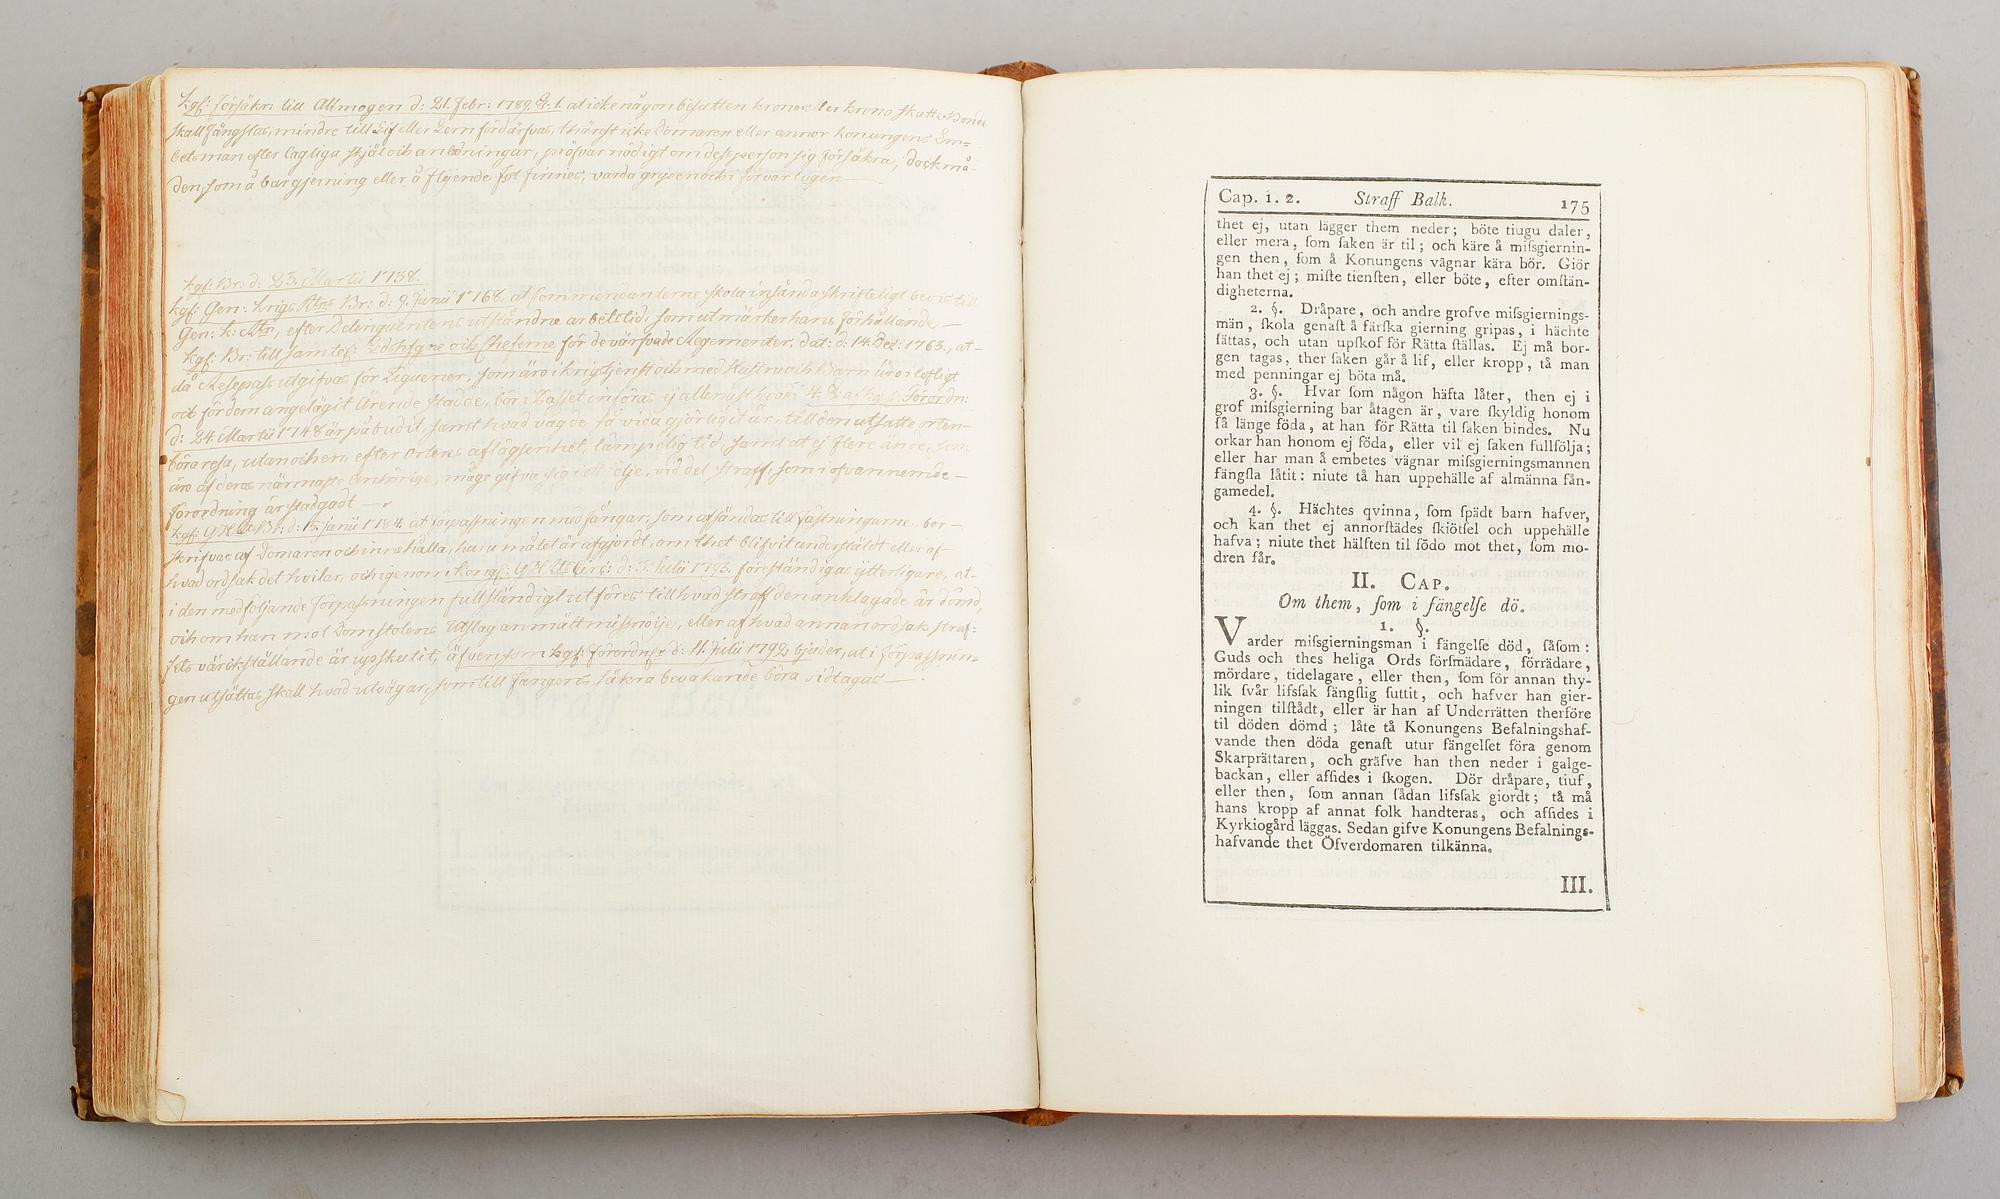 Kgl: Försäkr: till Allmogen d: 21. Febr: 1789. §. 1. at icke någon besutten krono eller krono skatte Bonde
skall fängslas, mindre till Lif eller Lem fördärfvas, thärest icke Domaren eller annor konungens Em=
betsman efter lagliga skjäl och anledningar, pröfvar nödigt om dess person sig försäkra, dock må-
den, som å bar gjerning eller å flyende fot finnes, varda gripen och i förvar tagen
Kgl: Br: d: 23. Martii 1738.
kgl: Gen: krigs Rtns Br: d: 9. Junii 1768. at Commendanterne skola insända skrifteligt bevis till
Gen: k: Rtn, efter Delinquentens utståndne arbetstid, som utmärker hans förhållande
kgl: Br: till samtel: Ldshfgne och Cheferne för de värfvade Regementer, dat: d: 14. Dec: 1763., at
då Resepass utgifvas för Ziguener, som äro i krigstjenst och med Hustru och Barn äro i lofligt
och för dem angelägit Ärende stadde, bör i Passet införas ej allenast hvad i 4. § af kgl: Förordn:
d: 24 Martii 1748 är påbudit, samt hvad väg de så vida gjörligit är, till den utsatte orten
böra resa, utan och en, efter Ortens aflägsenhet, lämpelig tid, samt at ej flere än de, som
äro af deras närmaste anhörige, måge gifva sig i ett följe, vid det straff, som i ofvannemnde
förordning är stadgadt
kgl: d: 15. Junii 1784. at förpassningen med fångar, som afsändas till Fästningarne, bör
skrifvas af Domaren och innehålla, huru målet är afgjordt, om thet blifvit understäldt eller af
hvad ordsak det hvilar, och igenom d: Julii 1793. föreständigas ytterligare, at
i den medföljande förpassningen fullständigt utföres till hvad straff den anklagade är dömd,
och om han mot Domstolens Utslag anmält missnöije, eller af hvad annan ordsak straf=
fets värckställande är upskutit, äfven som kgl: förordngr d: 11. Julii 1799, bjuder, at i förpassnin=
gen utsättas skall hvad utvägar, som till Fångens säkra bevakande böra vidtagas
Cap. 1. 2. Straff Balk. 175
thet ej, utan lägger them neder; böte tiugu daler,
eller mera, ſom ſaken är til; och käre å miſsgiernin-
gen then, ſom å Konungens vägnar kära bör. Giör
han thet ej; miſte tienſten, eller böte, efter omſtän-
digheterna.
2. §. Dråpare, och andre grofve miſsgiernings-
män, ſkola genaſt å färſka gierning gripas, i hächte
ſättas, och utan upſkof för Rätta ſtällas. Ej må bor-
gen tagas, ther ſaken går å lif, eller kropp, tå man
med penningar ej böta må.
3. §. Hvar ſom någon häfta låter, then ej i
grof miſsgierning bar åtagen är, vare ſkyldig honom
ſå länge föda, at han för Rätta til ſaken bindes. Nu
orkar han honom ej föda, eller vil ej ſaken fullfölja;
eller har man å embetes vägnar miſsgierningsmannen
fängſla låtit: niute tå han uppehälle af almänna fån-
gamedel.
4. §. Hächtes qvinna, ſom ſpädt barn hafver,
och kan thet ej annorſtädes ſkiötſel och uppehälle
hafva; niute thet hälften til födo mot thet, ſom mo-
dren får.
II. CAP.
Om them, ſom i fängelſe dö.
1. §.
Varder miſsgierningsman i fängelſe död, ſåſom:
Guds och thes heliga Ords förſmädare, förrädare,
mördare, tidelagare, eller then, ſom för annan thy-
lik ſvår lifsſak fängſlig ſuttit, och hafver han gier-
ningen tilſtådt, eller är han af Underrätten therföre
til döden dömd; låte tå Konungens Befalningshaf-
vande then döda genaſt utur fängelſet föra genom
Skarprättaren, och gräfve han then neder i galge-
backan, eller afſides i ſkogen. Dör dråpare, tiuf,
eller then, ſom annan ſådan lifsſak giordt; tå må
hans kropp af annat folk handteras, och afſides i
Kyrkiogård läggas. Sedan gifve Konungens Befalnings-
hafvande thet Öfverdomaren tilkänna.
III.